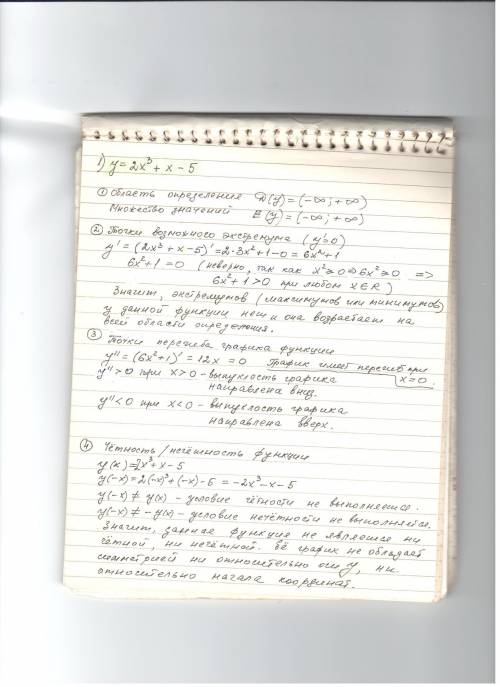 1) y = 2x³ + x - 5
① Область определения D(y) = (-∞; +∞)
Множество значений E(y) = (-∞; +∞)
② Точки возможного экстремума (y'=0)
y' = (2x³ + x - 5)' = 2·3x² + 1 - 0 = 6x² + 1
6x² + 1 = 0 (неверно, так как x² ≥ 0 ⇒ 6x² ≥ 0 ⇒
6x² + 1 > 0 при любом x ∈ R)
Значит, экстремумов (максимумов или минимумов)
у данной функции нет и она возрастает на
всей области определения.
③ Точки перегиба графика функции
y'' = (6x² + 1)' = 12x = 0 График имеет перегиб при
y'' > 0 при x > 0 - выпуклость графика x = 0.
направлена вниз.
y'' < 0 при x < 0 - выпуклость графика
направлена вверх.
④ Чётность/нечётность функции
y(x) = 2x³ + x - 5
y(-x) = 2(-x)³ + (-x) - 5 = -2x³ - x - 5
y(-x) ≠ y(x) - условие чётности не выполняется.
y(-x) ≠ -y(x) - условие нечётности не выполняется.
Значит, данная функция не является ни
чётной, ни нечётной. Её график не обладает
симметрией ни относительно оси y, ни
относительно начала координат.